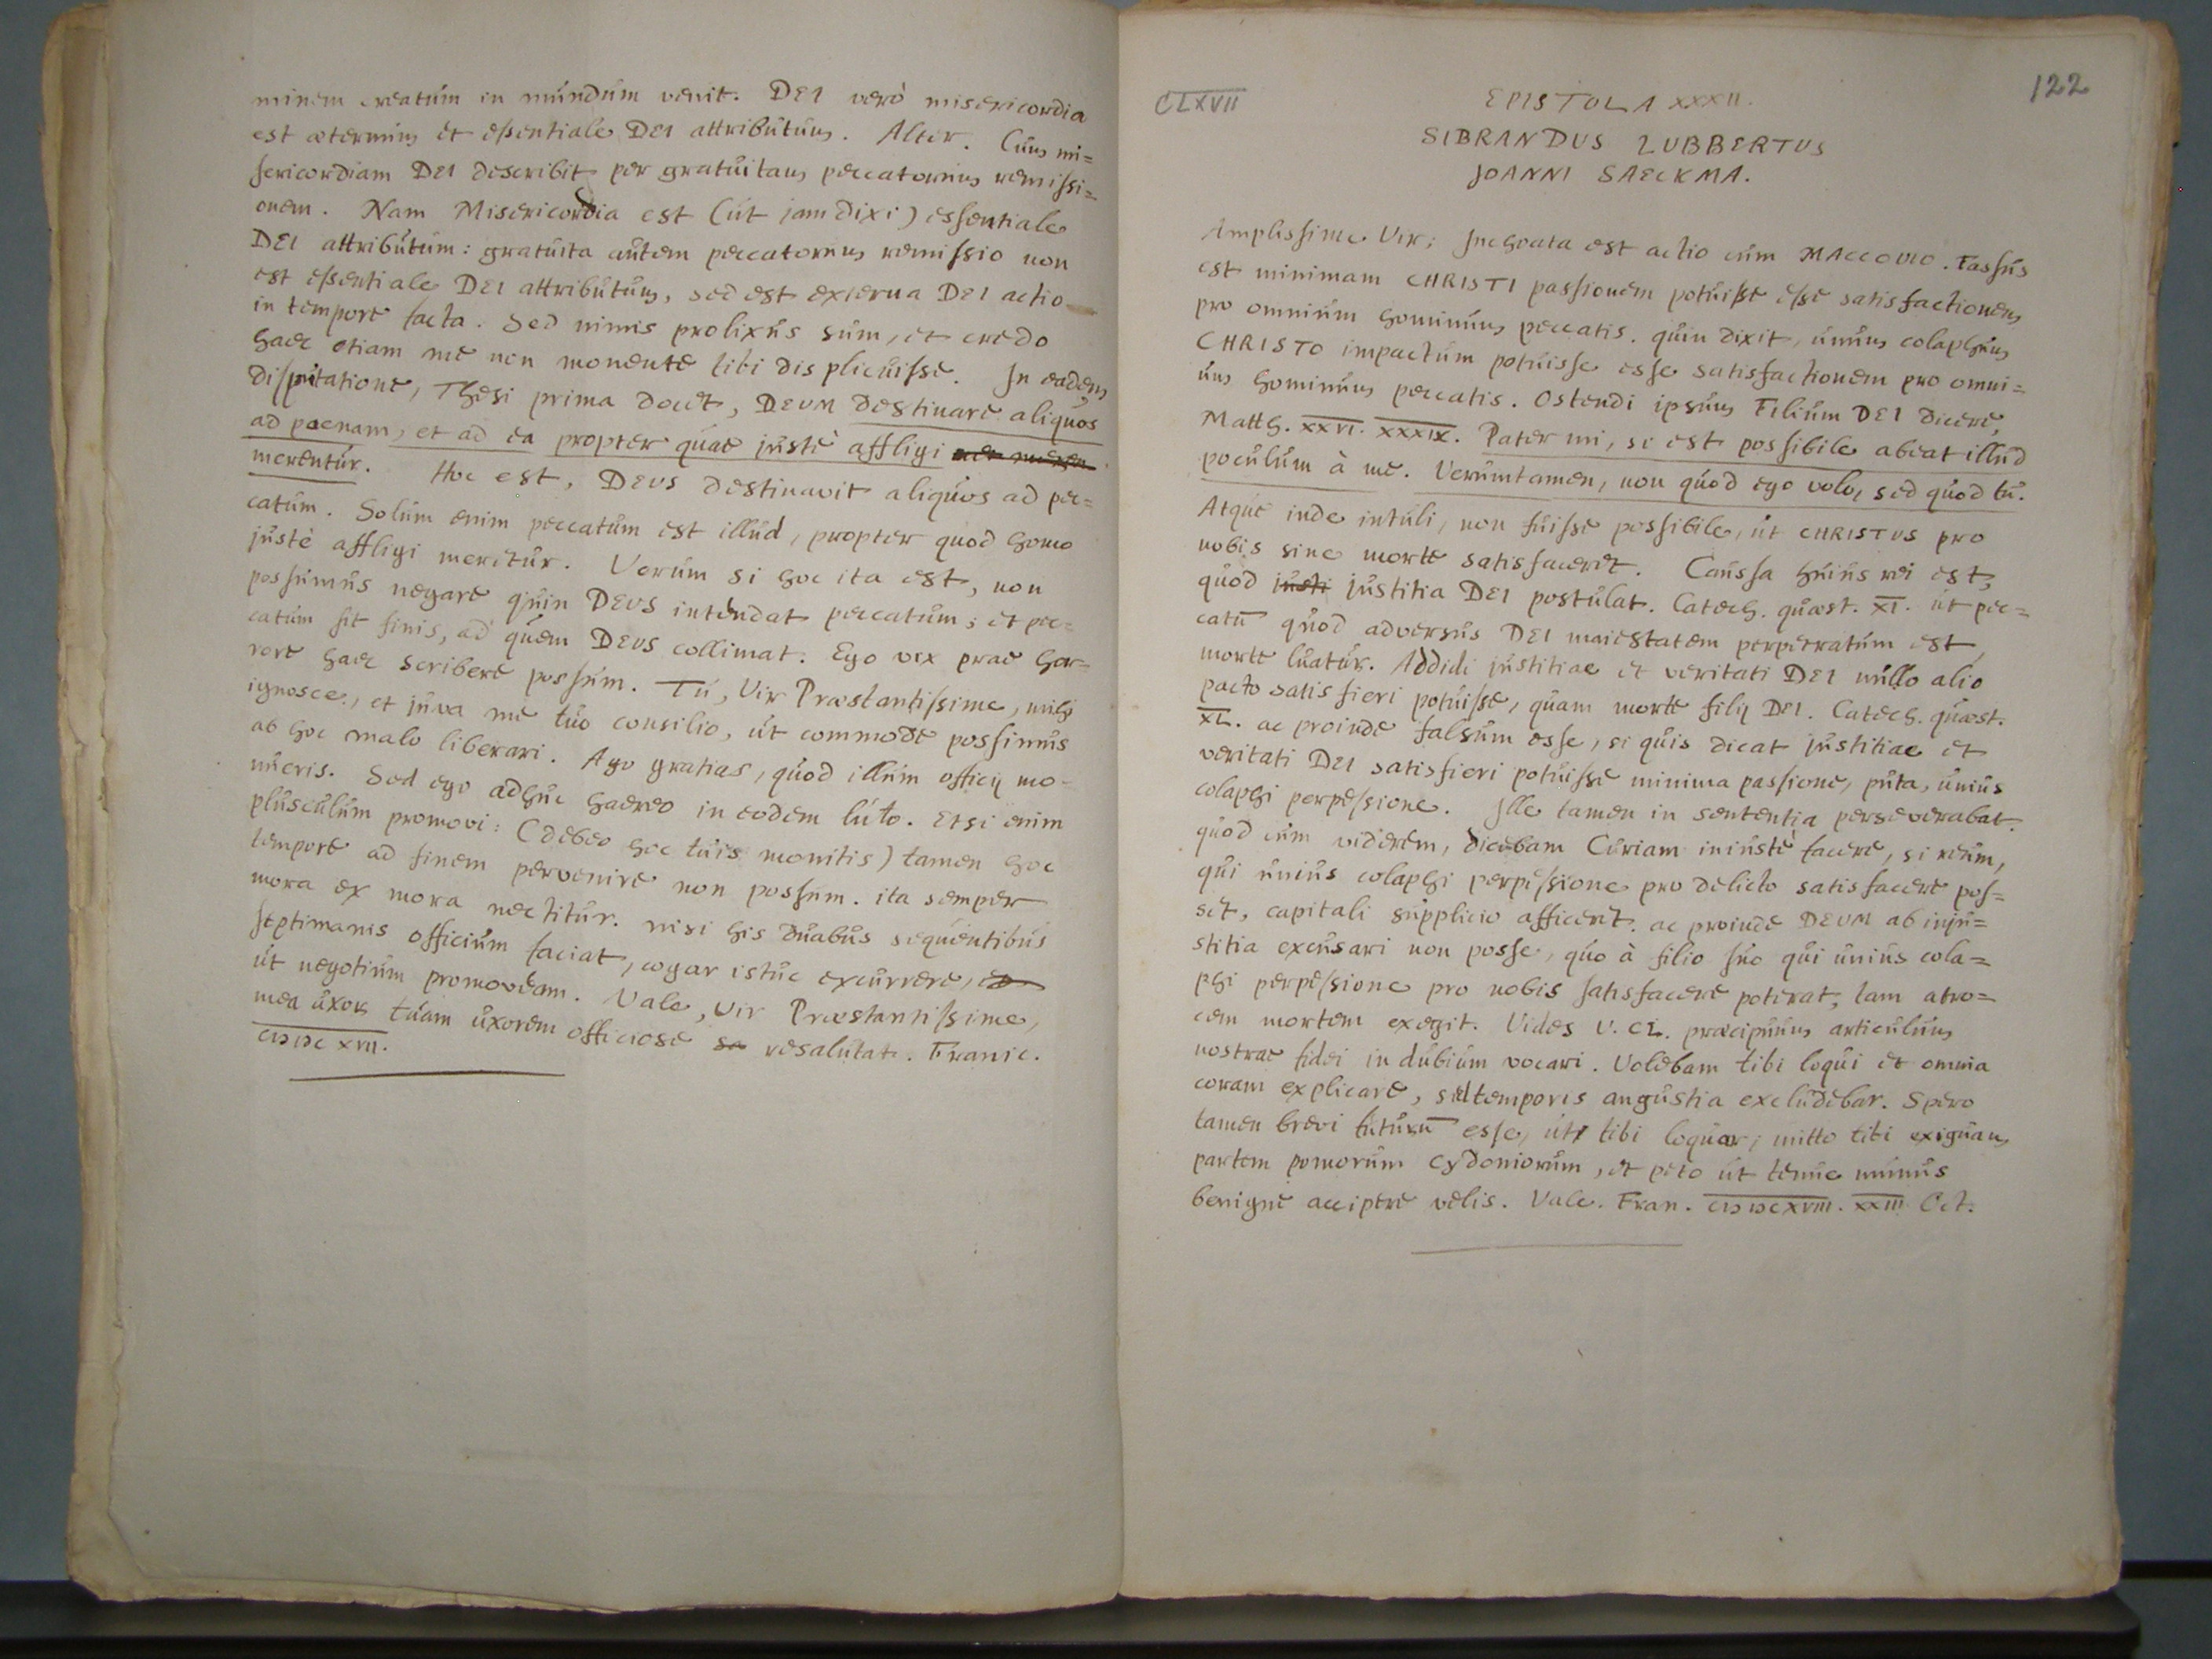 minem creatum in mundum venit. DEI verò misericordia
est æternum et essentiale DEI attributum. Alter. Cum mi=
sericordiam DEI describit per gratuitam peccatorum remissi=
onem. Nam Misericordia est (ut jam dixi) essentiale
DEI attributum: gratuita autem peccatorum remissio non
est essentiale DEI attributum, sed est externa DEI actio
in tempore facta. Sed nimis prolixus sum, et credo
haec etiam me non monente tibi displicuisse. In eadem
disputatione, Thesi prima docet, DEUM destinare aliquos
ad poenam, et ad ea propter quae justè affligi
merentur. Hoc est, DEUS destinavit aliquos ad pec=
catum. Solum enim peccatum est illud, propter quod homo
justè affligi meretur. Verum si hoc ita est, non
possumus negare quin DEUS intendat peccatum; et pec=
catum sit finis, ad quem DEUS collimat. Ego vix prae hor=
rore haec scribere possum. Tu, Vir Præstantissime, mihi
ignosce, et juva me tuo consilio, ut commode possimus
ab hoc malo liberari. Ago gratias, quod illum officij mo-
nueris. Sed ego adhuc haereo in eodem luto. Etsi enim
plusculum promovi: (debeo hoc tuis monitis) tamen hoc
tempore ad finem pervenire non possum. ita semper
mora ex mora nectitur. nisi his duabus sequentibus
septimanis officium faciat, cogar istuc excurrere,
ut negotium promoveam. Vale, Vir Præstantissime,
mea uxor tuam uxorem officiose resalutat. Franic.
CIↃ IↃC XVII.
CLXVII
122
EPISTOLA XXXII.
SIBRANDUS LUBBERTUS
JOANNI SAECKMA.
Amplissime Vir; Inchoata est actio cum MACCOVIO. Fassus
est minimam CHRISTI passionem potuisse esse satisfactionem
pro omnium hominum peccatis. quin dixit, unum colaphum
CHRISTO impactum potuisse esse satisfactionem pro omni=
um hominum peccatis. Ostendi ipsum Filium DEI dicere,
Matth. XXVI. XXXIX. Pater mi, si est possibile abeat illud
poculum à me. Verumtamen, non quod ego volo, sed quod tu.
Atque inde intuli, non fuisse possibile, ut CHRISTUS pro
nobis sine morte satisfaceret. Caussa huius rei est,
quod justi justitia DEI postulat. Catech. quæst. XI. ut pec=
catū quod adversus DEI maiestatem perpetratum est,
morte luatur. Addidi justitiae et veritati DEI nullo alio
pacto satisfieri potuisse, quam morte filij DEI. Catech. quæst.
XL. ac proinde falsum esse, si quis dicat justitiae et
veritati DEI satisfieri potuisse minima passione, puta, unius
colaphi perpessione. Ille tamen in sententia perseverabat.
quod cum viderem, dicebam Curiam iniustè facere, si reum,
qui unius colaphi perpessione pro delicto satisfacere pos=
set, capitali supplicio afficeret. ac proinde DEUM ab inju=
stitia excusari non posse, quo à filio suo qui unius cola=
phi perpessione pro nobis satisfacere poterat, tam atro=
cem mortem exegit. Vides V. CL. præcipuum articulum
nostrae fidei in dubium vocari. Volebam tibi loqui et omnia
coram explicare, sed temporis angustia excludebar. Spero
tamen brevi futurū esse, ut tibi loquar; mitto tibi exiguam
partem pomorum Cydoniorum, et peto ut tenue munus
benigne accipere velis. Vale. Fran. CIↃ IↃC XVIII. XXIII Oct.